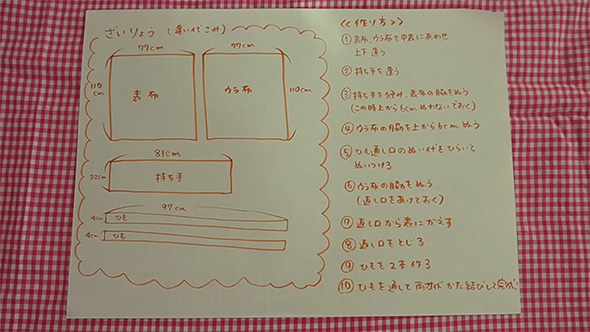 ざいりょう (ぬいしろこみ)
77cm
77cm
110cm
表布
ウラ布
110cm
81cm
22cm
持ち手
97cm
4cm
ひも
4cm
ひも
<<作り方>>
① 表布、ウラ布を中表にあわせ
上下 縫う
② 持ち手を縫う
③ 持ち手をはさみ、表布の脇をぬう
(この時上から6cmぬわないでおく)
④ ウラ布の脇を上から6cmぬう
⑤ ひも通し口のぬい代をひらいて
ぬいつける
⑥ ウラ布の脇をぬう
(返し口をあけておく)
⑦ 返し口から表にかえす
⑧ 返し口をとじる
⑨ ひもを2本作る
⑩ ひもを通して両サイドかた結びして完成!